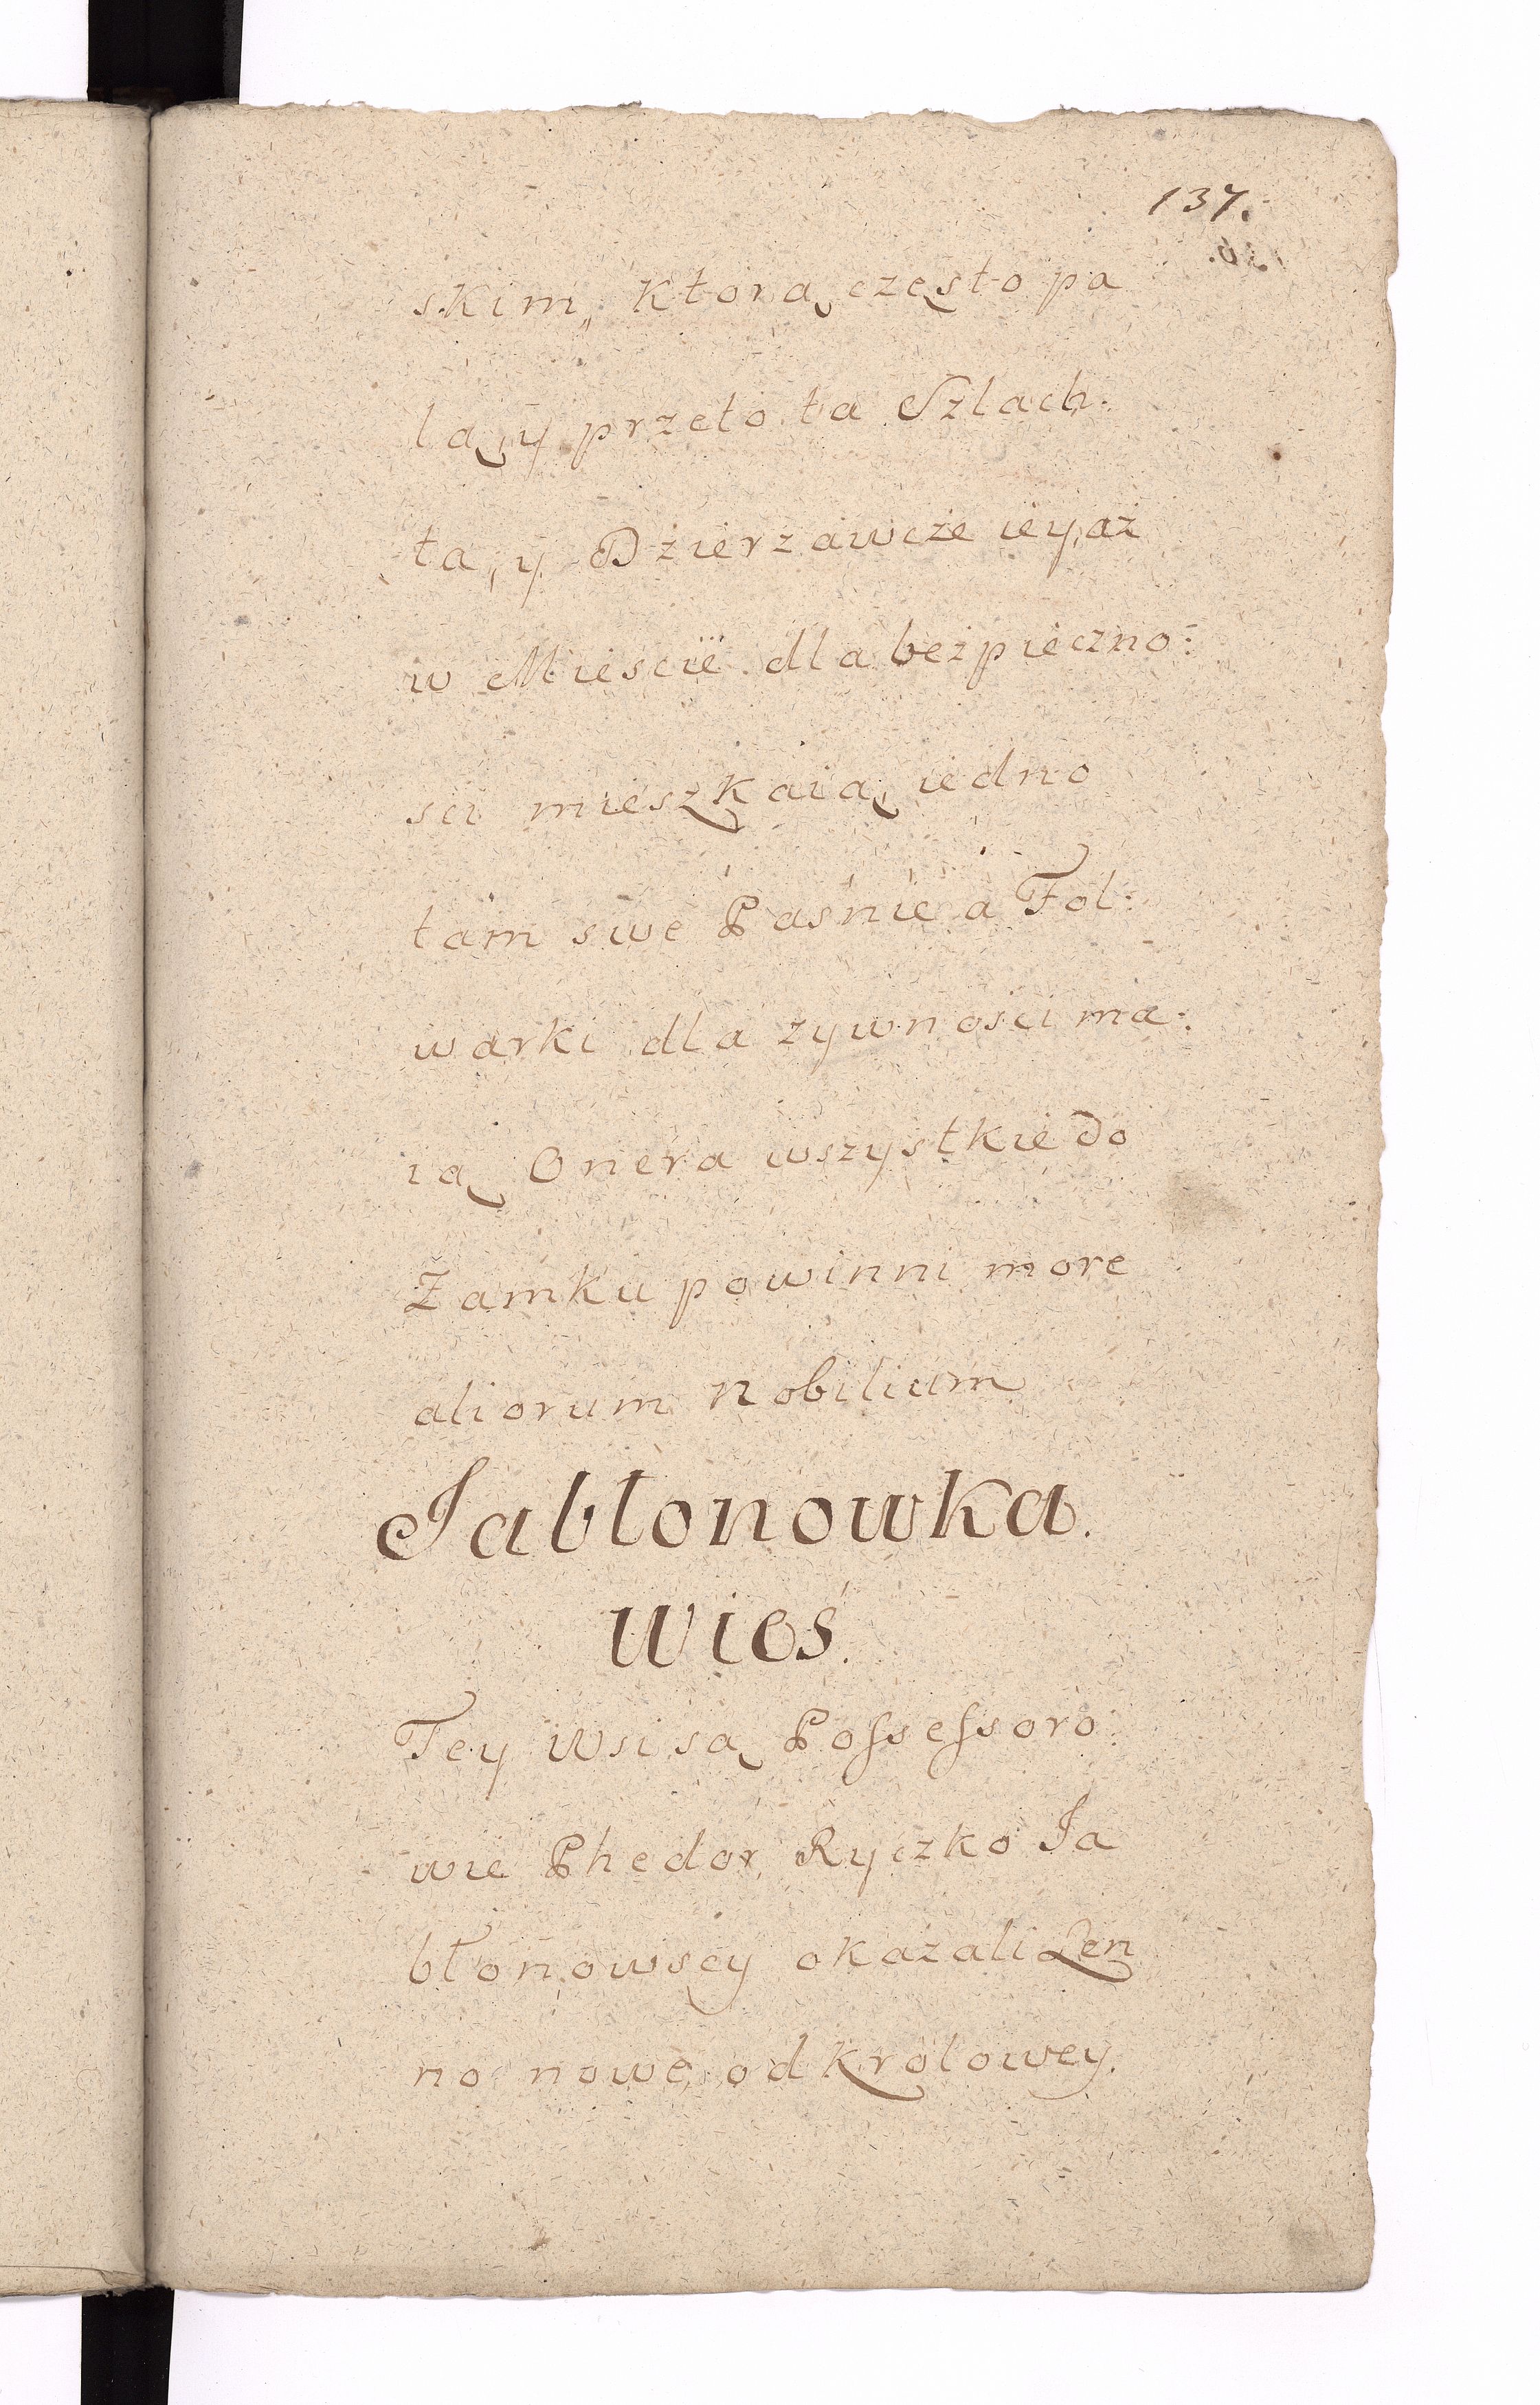 137.
skim„ ktorą często pa
lą, y przeto ta Szlach:
ta, y Dzierzawcze iey, aż
w Miescie dla bezpieczno:
sci mieszkaią, iedno
tam swe Paśnie a Fol:
warki dla zywności ma:
ią Onera wszystkie do
Zamku powinni more
aliorum Nobilium
Jabłonowka.
wieś.
Tey wsi są Possessoro:
wie Phedor, Ryczko Ja
błonowscy okazali Len
no nowe, od Krolowey.